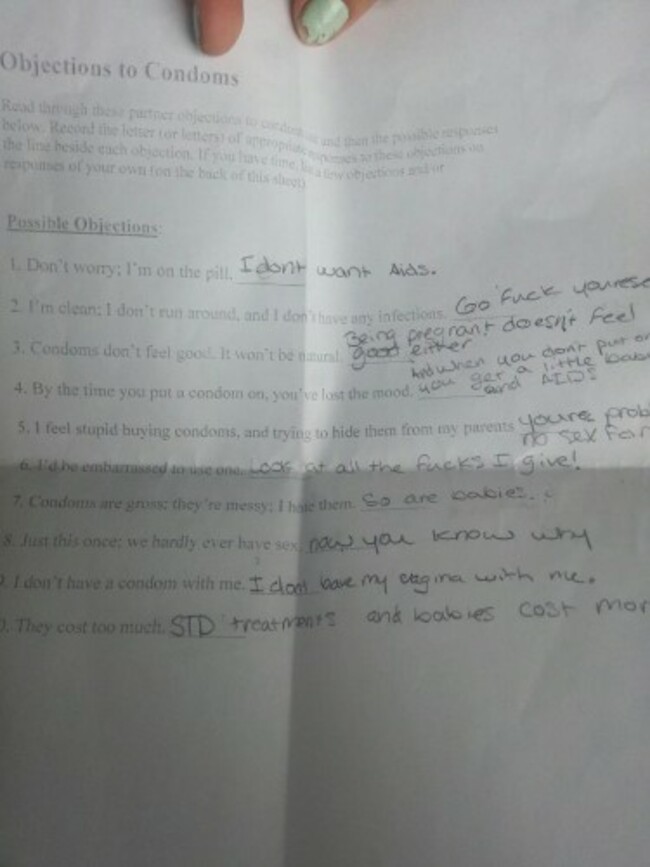 Objections to Condoms
Read through these partner objections to condom use and then the possible responses
below. Record the letter (or letters) of appropriate responses to these objections on
the line beside each objection. If you have time, a few objections and/or
responses of your own (on the back of this sheet)
Possible Objections:
1. Don't worry; I'm on the pill. I dont want Aids.
2. I'm clean; I don't run around, and I don't have any infections. Go fuck yourse
Being pregnant doesn't feel
3. Condoms don't feel good. It won't be natural. good either
And when you don't put on
4. By the time you put a condom on, you've lost the mood. you get a little bab
and AIDS
5. I feel stupid buying condoms, and trying to hide them from my parents youre prob
no sex for
6. I'd be embarrassed to use one. Look at all the fucks I give!
7. Condoms are gross; they're messy; I hate them. So are babies.
8. Just this once; we hardly ever have sex. now you know why
9. I don't have a condom with me. I dont have my vagina with me.
0. They cost too much. STD treatments and babies cost mor